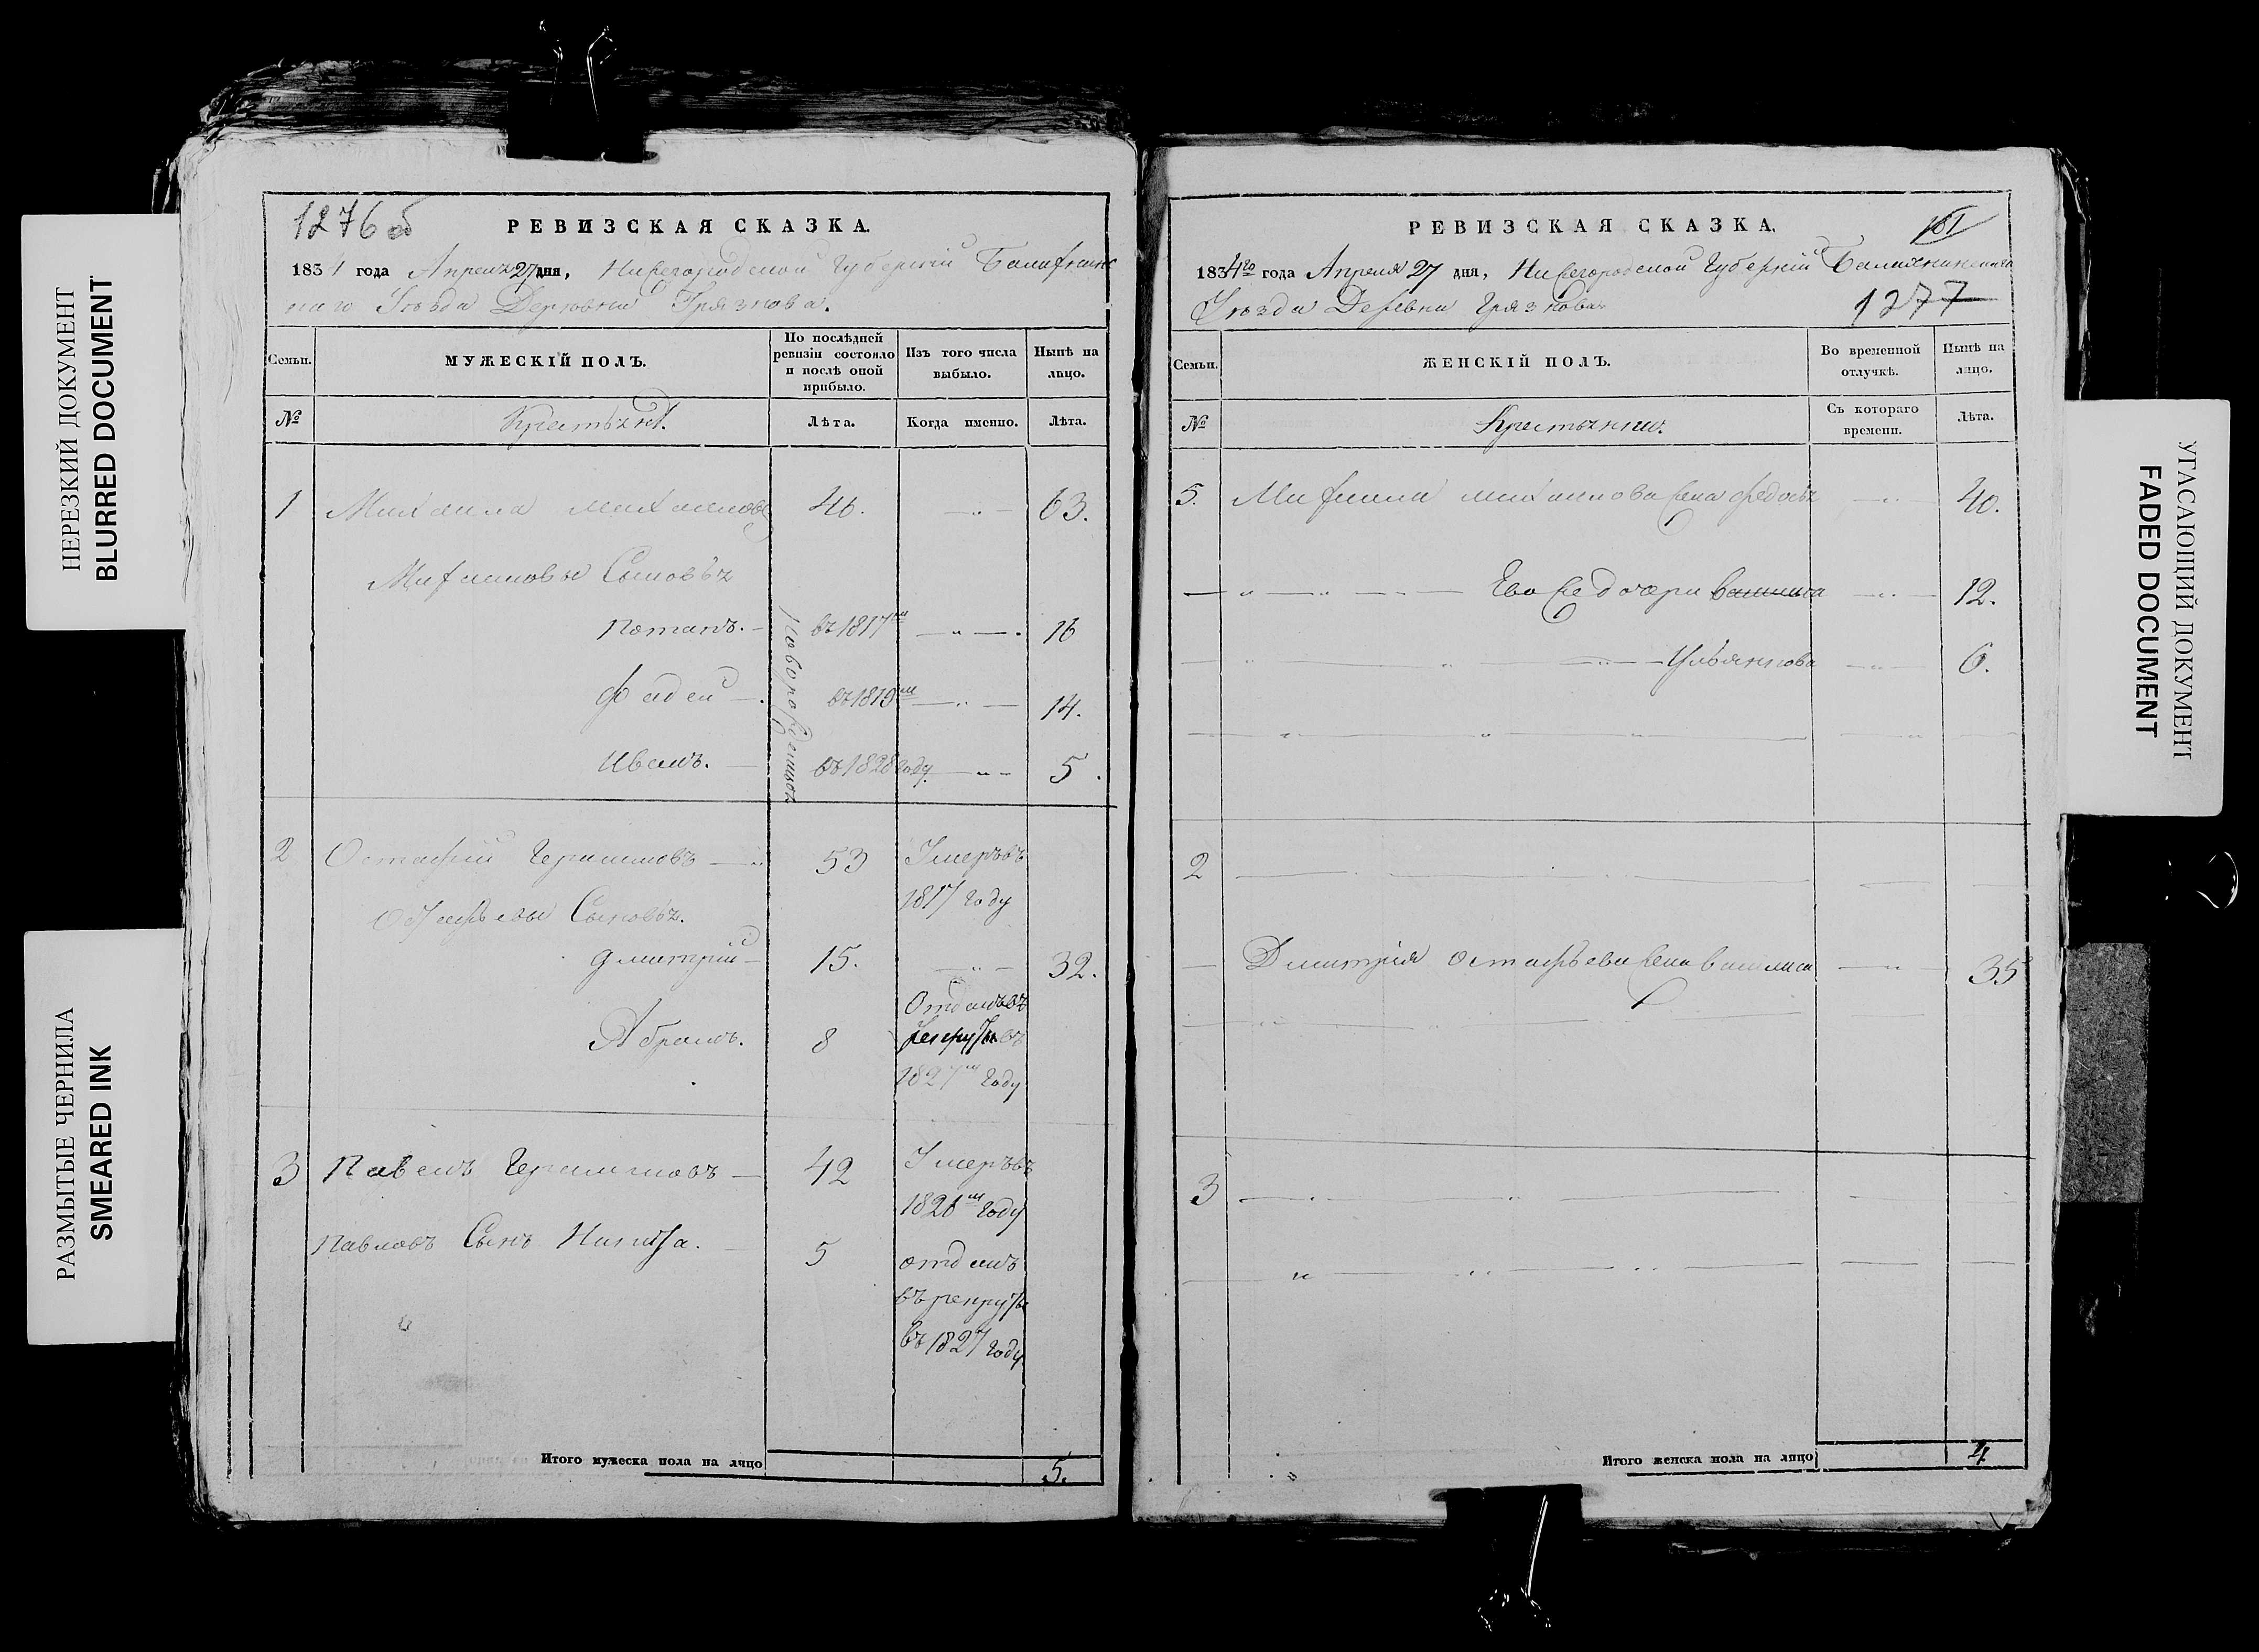 НЕРЕЗКИЙ ДОКУМЕНТ
BLURRED DOCUMENT
РАЗМЫТЫЕ ЧЕРНИЛА
SMEARED INK
1276 об
РЕВИЗСКАЯ СКАЗКА.
1834 года Апреля 27 дня, Нижегородской Губернии
Уезда Деревни Грязнова.
Семьи.
МУЖЕСКІЙ ПОЛЪ.
По послѣдней ревизіи состояло и послѣ оной прибыло.
Изъ того числа выбыло.
Нынѣ на лицо.
№
Крестьяне.
Лѣта.
Когда именно.
Лѣта.
1 Михаила Михаиловъ 46. 63.
Сыновья
Потапъ. въ 1817 16
Фадей въ 1819 14.
Иванъ. въ 1828 году 5.
новорожденные
2 Остафий Герасимовъ 53 Умеръ въ
1817 году
Остафьевы Сыновья.
Дмитрий 15. 32.
Отданъ въ
Абрамъ. 8 рекруты въ
1827 году
3 Павелъ Герасимовъ 42 Умеръ въ
году
Павловъ Сынъ Никита. 5 отданъ
въ рекруты
въ 1827 году
Итого мужеска пола на лицо 5.
РЕВИЗСКАЯ СКАЗКА.
161
1834го года Апреля 27 дня, Нижегородской Губерніи
Уезда Деревни Грязнова
1277
Семьи.
ЖЕНСКІЙ ПОЛЪ.
Во временной отлучкѣ.
Нынѣ на лицо.
№
Съ котораго времени.
Лѣта.
5. Михаила Михаилова жена 40.
Ево же дочери 12.
6.
2
Дмитрія Остафьева жена Василиса 35
3
Итого женска пола на лицо 4
УГАСАЮЩИЙ ДОКУМЕНТ
FADED DOCUMENT